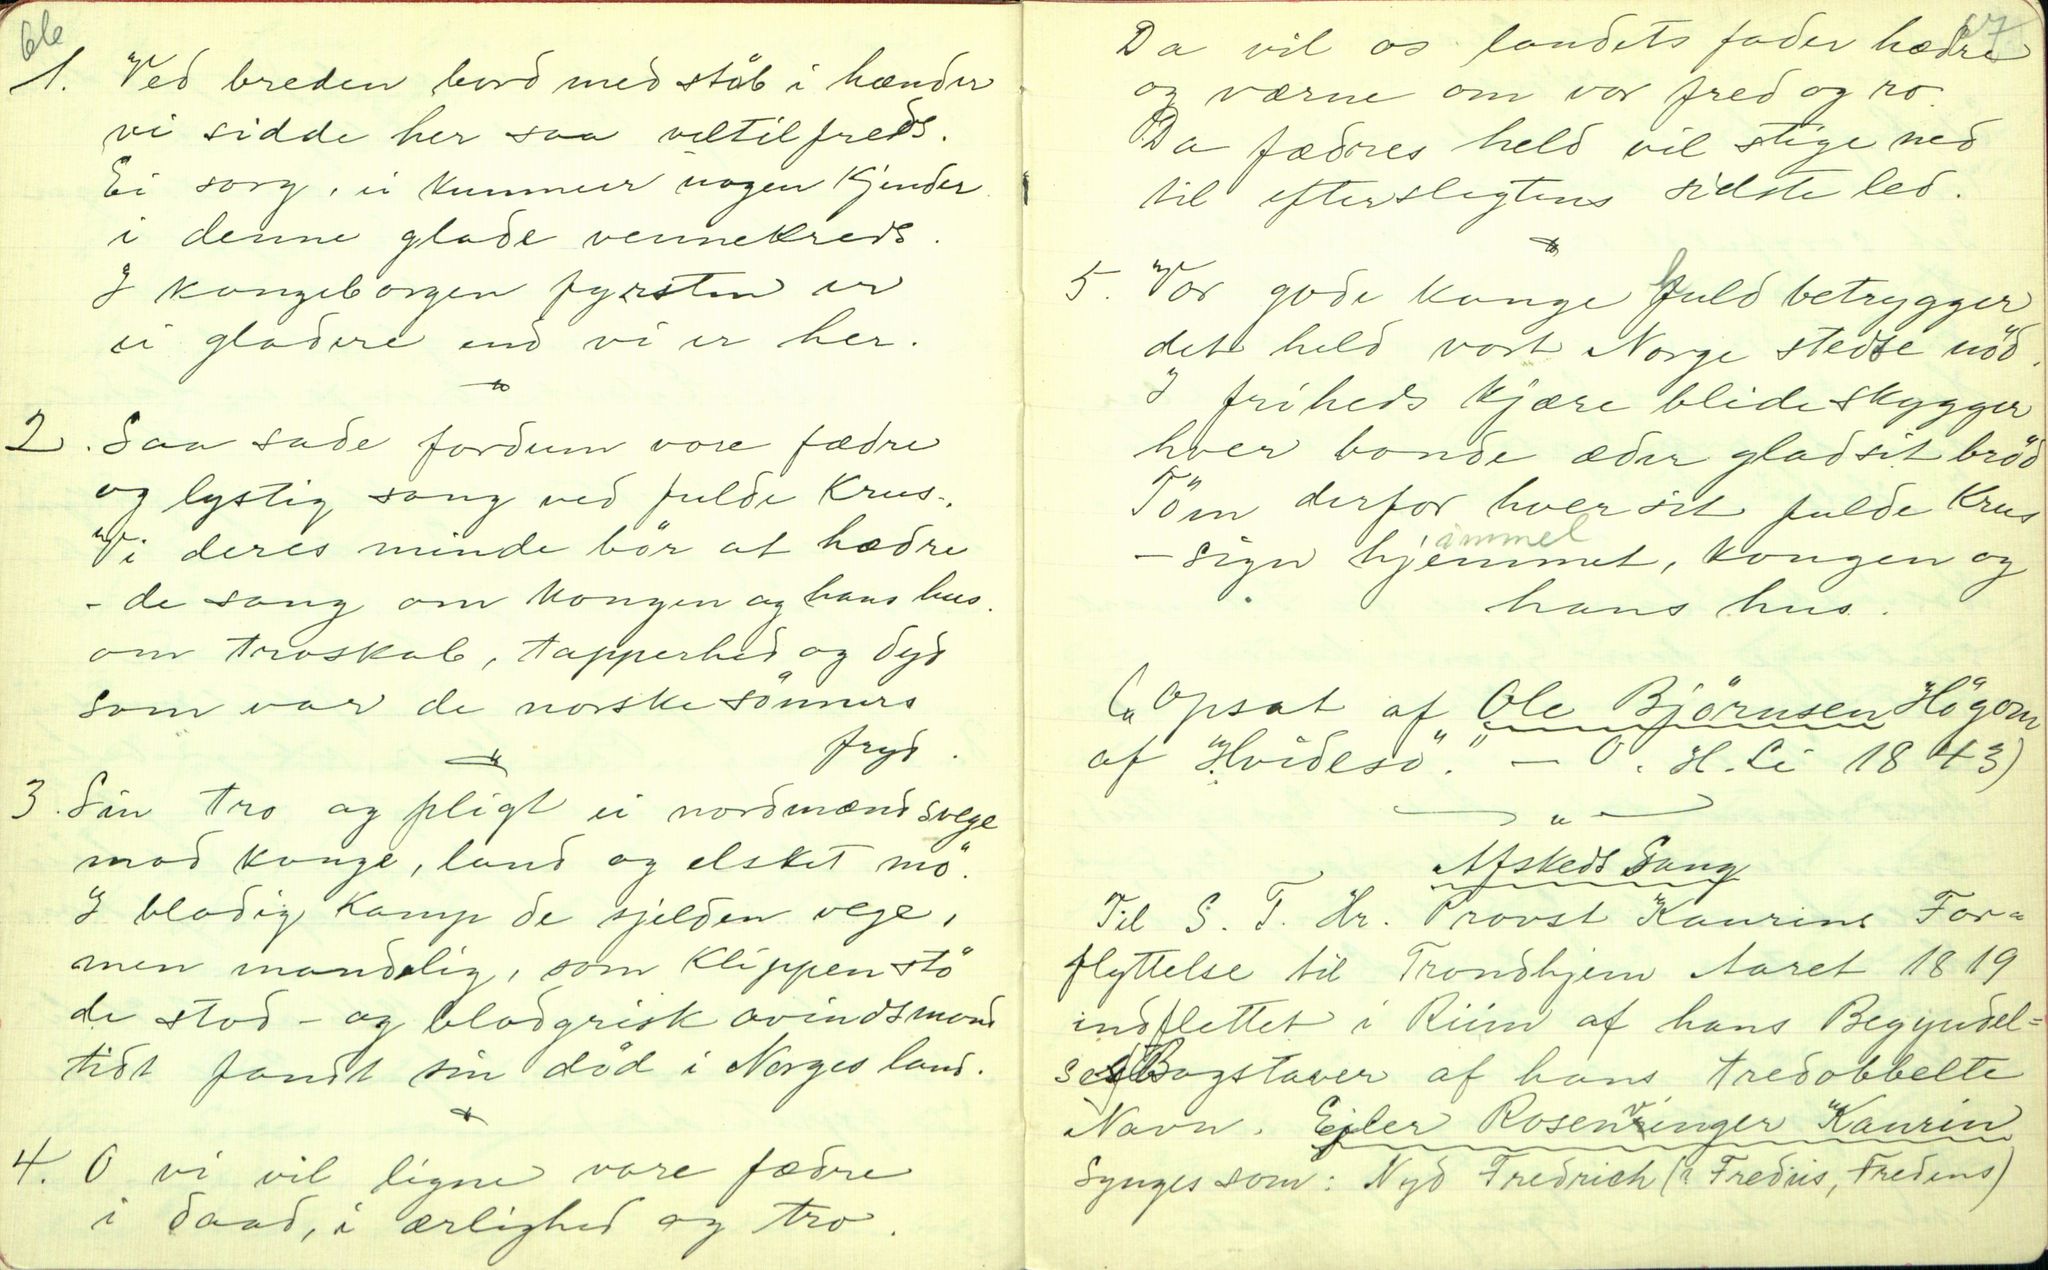 66
1. Ved breden bord med stöb i hænder
vi sidde her saa veltilfreds.
Ei sorg, ei kummer nogen kjender
i denne glade vennekreds.
I kongeborgen fyrsten er
ei gladere end vi er her.
2. Saa sade fordum vore fædre
og lystig sang ved fulde krus.
Vi deres minde bör at hædre
- de sang om kongen og hans hus.
om troskab, tapperhed og dyd
som var de norske sönners
fryd.
3. Sin tro og pligt ei nordmænd svege
mod konge, land og elsket mö.
I blodig kamp de sjelden vege,
men mandelig, som klippen stö
de stod - og blodgrisk avindsmand
tidt fandt sin död i Norges land.
4. O vi vil ligne vore fædre
i daad, i ærlighed og tro.
67
Da vil os landets fader hædre
og værne om vor fred og ro.
Da fædres held vil stige ned
til efterslegtens sidste led.
5. Vor gode konge huld betrygger
det held vort Norge stedse nöd.
I friheds kjære blide skygger
hver bonde æder glad sit bröd
Töm derfor hver sit fulde krus
immel
- sign hjemmet, kongen og
hans hus.
("Opsat af Ole Björnsen Högom
af Hvidesö". " - O. H. Li 1843)
Afskeds Sang
Til S. T. Hr. Provst Kaurins For-
flyttelse til Trondhjem Aaret 1819
indflettet i Riim af hans Begyndel=
ses Bogstaver af hans tredobbelte
Navn. Ejler Rosenvinger Kaurin
Synges som: Nyd Fredrich (? Fredris, Fredens)